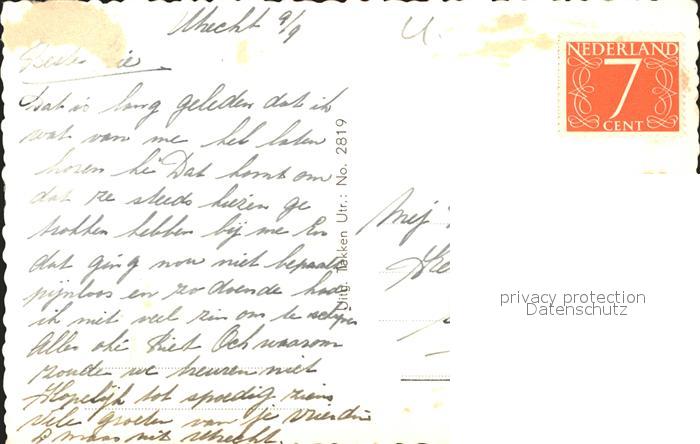 Utrecht 9/9
Beste
dat is lang geleden dat ik
wat van me heb laten
horen hè Dat komt om
dat ze steeds kiezen ge
trokken hebben bij me En
dat ging nou niet bepaald
pijnloos en zodoende had
ik niet veel zin om te
Alles oké Riet Och waarom
zouden we treuren niet
Hopelijk tot spoedig ziens
Vele groeten van je vriendin
uit Utrecht.
Uitg. Takken Utr.: No. 2819
NEDERLAND
7
CENT
Mej
privacy protection
Datenschutz